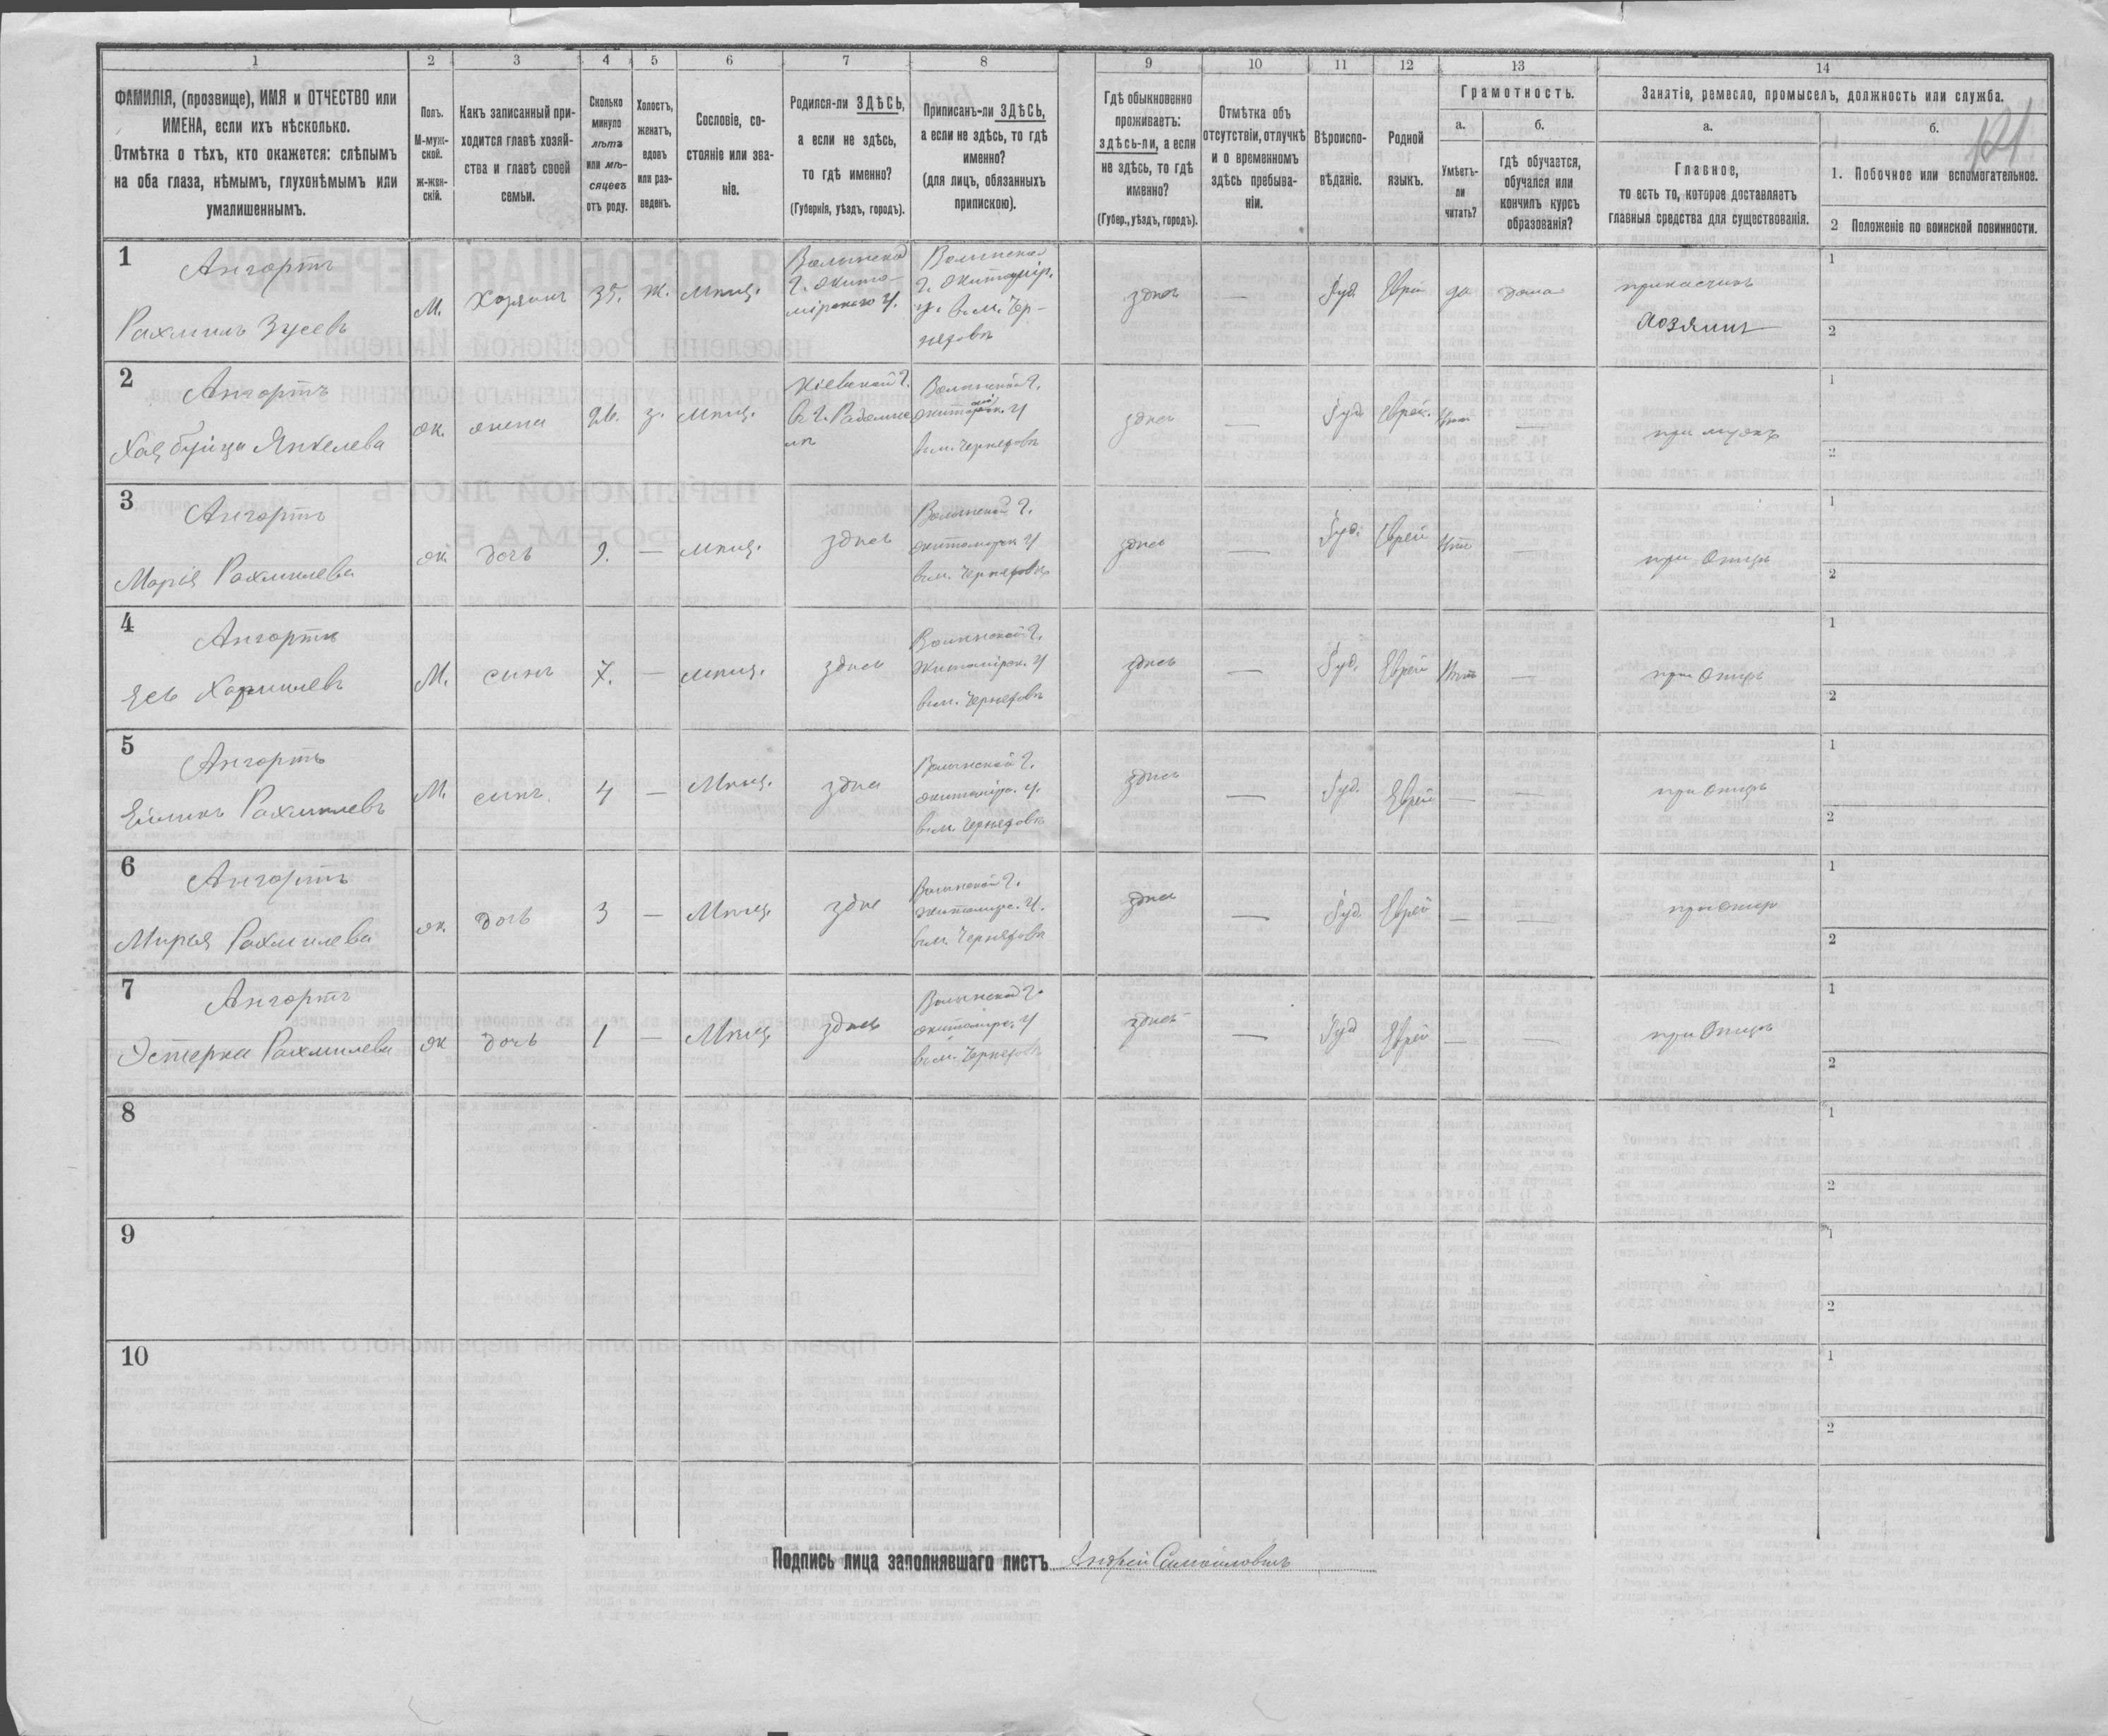 1 2 3 4 5 6 7 8 9 10 11 12 13 14
ФАМИЛІЯ, (прозвище), ИМЯ и ОТЧЕСТВО или
ИМЕНА, если ихъ нѣсколько.
Отмѣтка о тѣхъ, кто окажется: слѣпымъ
на оба глаза, нѣмымъ, глухонѣмымъ или
умалишеннымъ.
Полъ.
М-муж-
ской.
ж-жен-
скій.
Какъ записанный при-
ходится главѣ хозяй-
ства и главѣ своей
семьи.
Сколько
минуло
лѣтъ
или мѣ-
сяцевъ
отъ роду.
Холостъ,
женатъ,
вдовъ
или раз-
веденъ.
Сословіе, со-
стояніе или зва-
ніе.
Родился-ли ЗДѢСЬ,
а если не здѣсь,
то гдѣ именно?
(Губернія, уѣздъ, городъ).
Приписанъ-ли ЗДѢСЬ,
а если не здѣсь, то гдѣ
именно?
(для лицъ, обязанныхъ
припискою).
Гдѣ обыкновенно
проживаетъ:
здѣсь-ли, а если
не здѣсь, то гдѣ
именно?
(Губер., уѣздъ, городъ).
Отмѣтка объ
отсутствіи, отлучкѣ
и о временномъ
здѣсь пребыва-
ніи.
Вѣроиспо-
вѣданіе.
Родной
языкъ.
Грамотность.
а.
Умѣетъ-
ли
читать?
б.
гдѣ обучается,
обучался или
кончилъ курсъ
образованія?
Занятіе, ремесло, промыселъ, должность или служба.
а.
Главное,
то есть то, которое доставляетъ
главныя средства для существованія.
б.
1. Побочное или вспомогательное.
2 Положеніе по воинской повинности.
1
Ангортъ
Рахмилъ Зусевъ
М. Хозяинъ ж. мѣщ.
Волынской
Г. Жито-
мірскаго у.
Волынской
Г. Житомір.
у. в м. Чер-
няховѣ
здѣсь — Іуд. Еврей да дома
прикащикъ
Хозяинъ
1
2
2
Ангортъ
Янкелева
ж. жена з. мѣщ.
Кіевской Г.
Волынской Г.
в м. Черняховѣ
здѣсь — Іуд. Еврей. Нѣтъ при мужѣ
1
2
3
Ангортъ
Марія Рахмилева
ж. дочь 9. — мѣщ. здѣсь
Волынской Г.
Житомірск. у
в м. Черняховѣ
здѣсь — Іуд. Еврей Нѣтъ — при Отцѣ
1
2
4
Ангортъ
М. сынъ 7. — мѣщ. здѣсь
Волынской Г.
Житомірск. у
в м. Черняховѣ
здѣсь — Іуд. Еврей Нѣтъ — при Отцѣ
1
2
5
Ангортъ
Рахмилевъ
М. сынъ 4 — Мѣщ. здѣсь
Волынской Г.
Житомірс. у.
в м. Черняховѣ
здѣсь — Іуд. Еврей — — при Отцѣ
1
2
6
Ангортъ
Мирья Рахмилева
ж. дочь 3 — Мѣщ. здѣсь
Волынской Г.
Житомірс. у.
в м. Черняховѣ
здѣсь — Іуд. Еврей — — при Отцѣ
1
2
7
Ангортъ
Эстерка Рахмилева
ж дочь 1 — Мѣщ. здѣсь
Волынской Г.
Житомірс. у
в м. Черняховѣ
здѣсь — Іуд Еврей — — при Отцѣ
1
2
8
1
2
9
1
2
10
1
2
Подпись лица заполнявшаго листъ Андрей Самойловичъ